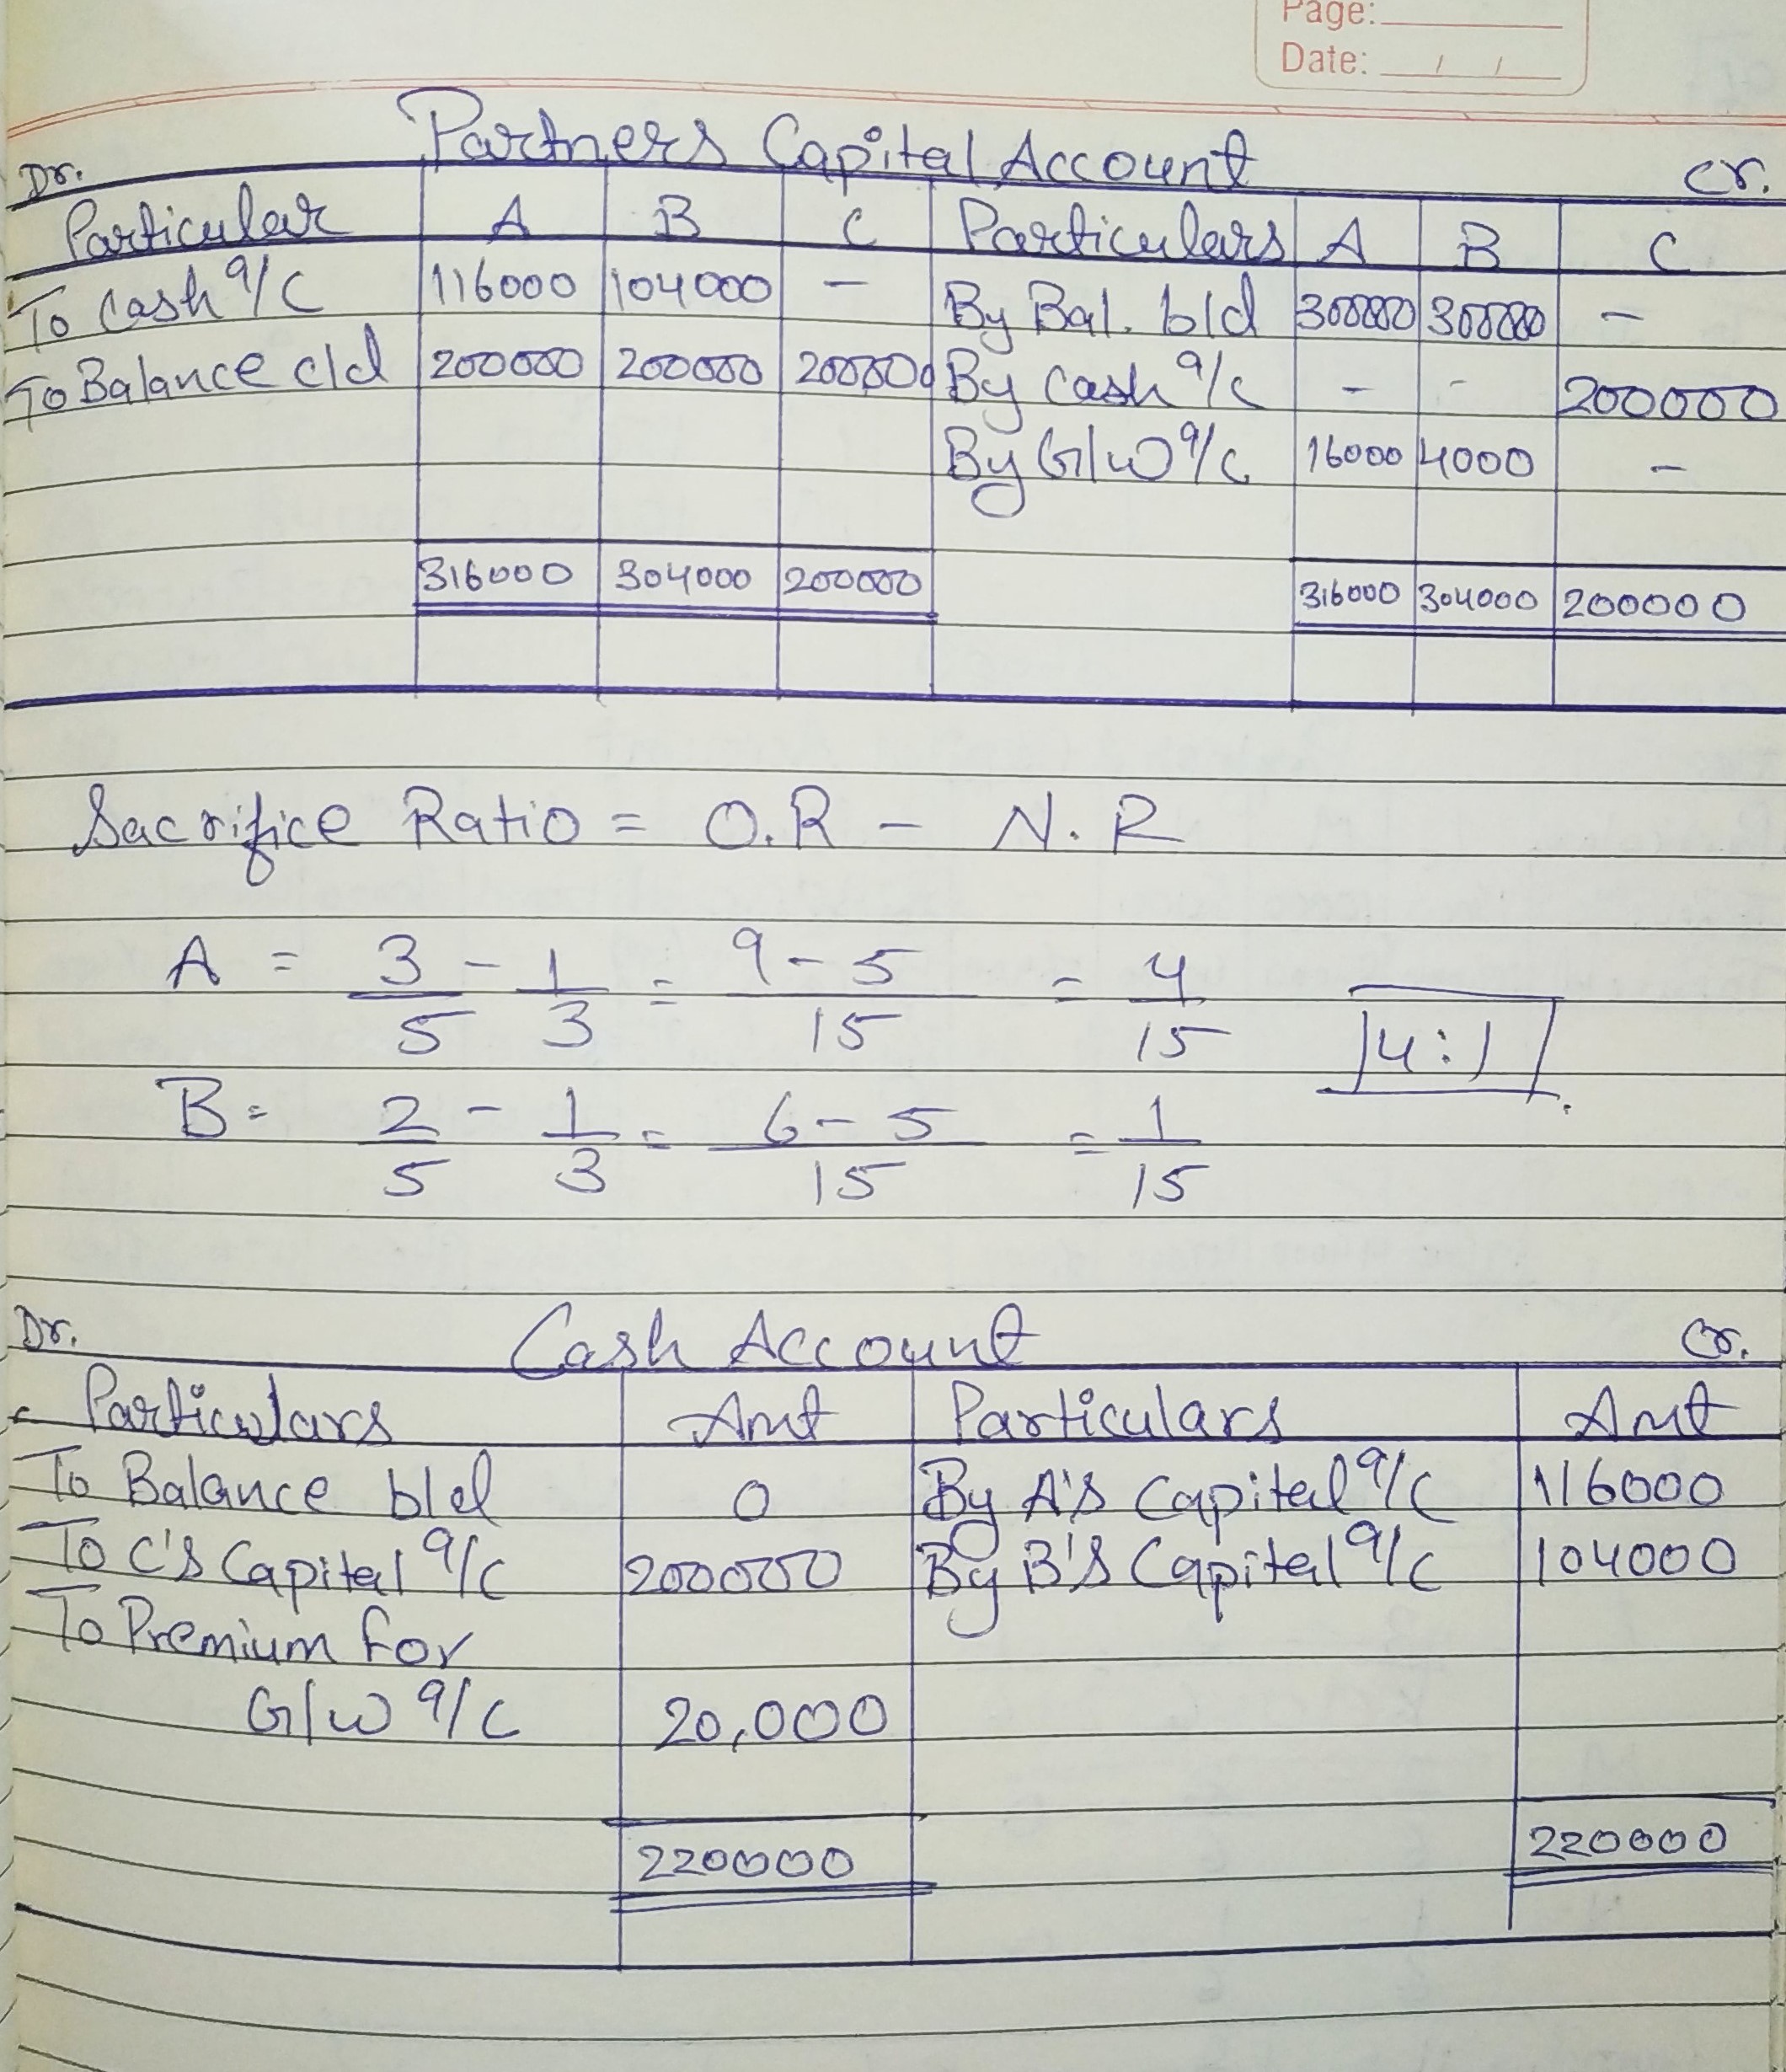 Page:
Date: / /
Partners Capital Account
Dr. Cr.
Particular A B C Particulars A B C
To Cash a/c 116000 104000 – By Bal. b/d 300000 300000 –
To Balance c/d 200000 200000 200000 By Cash a/c - - 200000
By G/w a/c 16000 4000 –
316000 304000 200000 316000 304000 200000
Sacrifice Ratio = O.R – N.R
A = 3/5 - 1/3 = 9-5/15 = 4/15 4:1
B = 2/5 - 1/3 = 6-5/15 = 1/15
Dr. Cash Account Cr.
Particulars Amt Particulars Amt
To Balance b/d 0 By A's Capital a/c 116000
To C's Capital a/c 200000 By B's Capital a/c 104000
To Premium for
G/w a/c 20,000
220000 220000